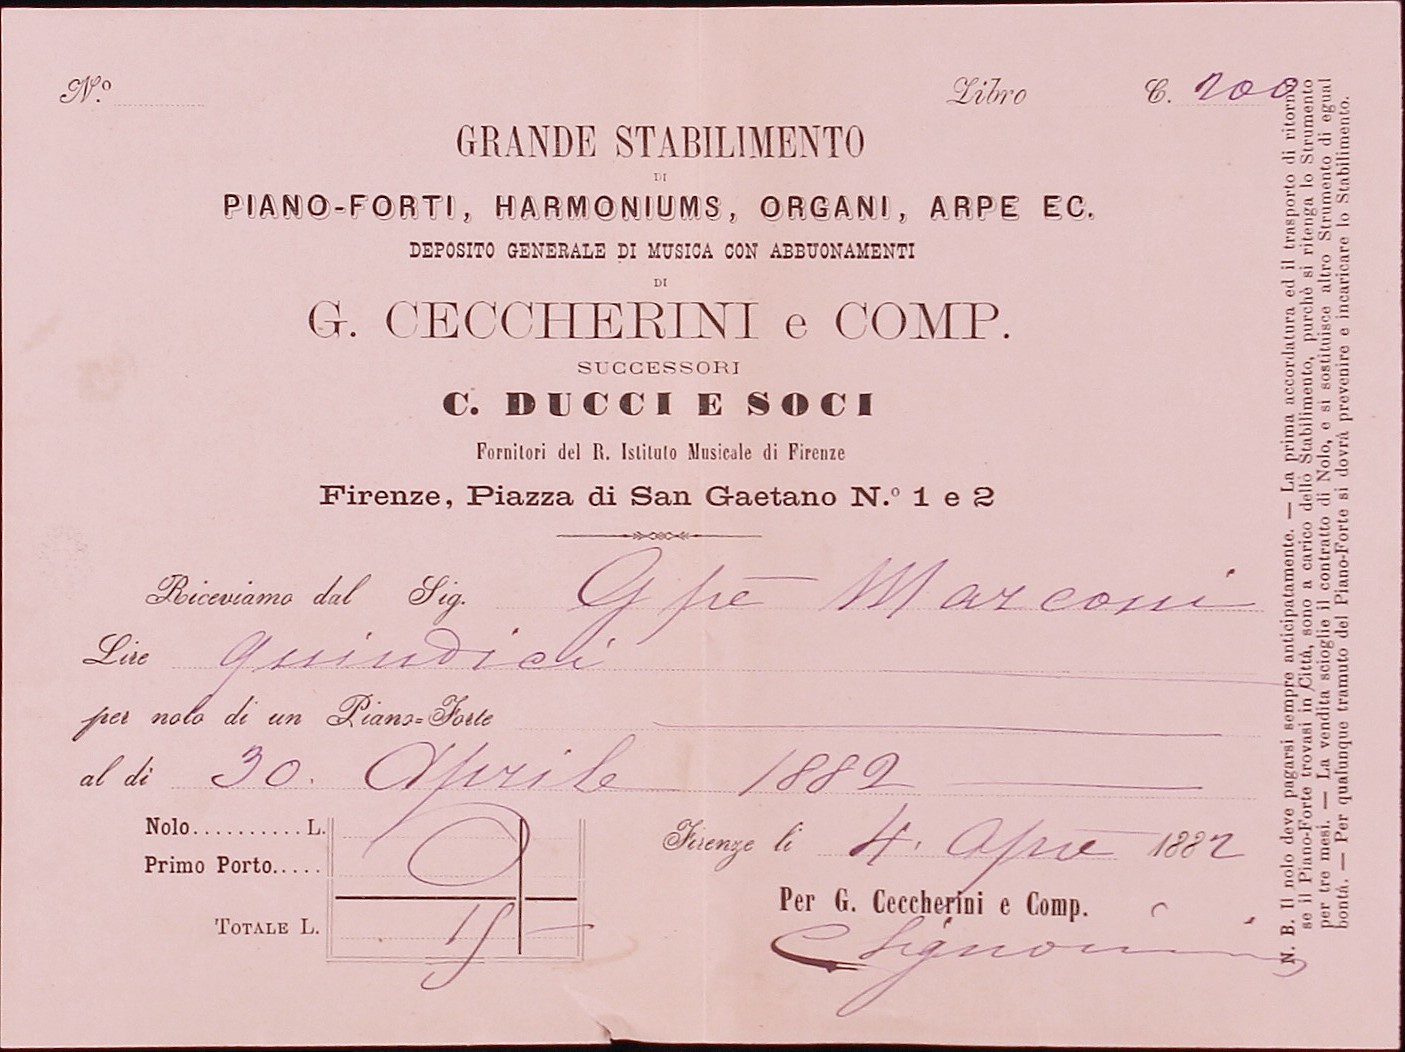 N.º
Libro C. 200
GRANDE STABILIMENTO
DI
PIANO-FORTI, HARMONIUMS, ORGANI, ARPE EC.
DEPOSITO GENERALE DI MUSICA CON ABBUONAMENTI
DI
G. CECCHERINI e COMP.
SUCCESSORI
C. DUCCI E SOCI
Fornitori del R. Istituto Musicale di Firenze
Firenze, Piazza di San Gaetano N.º 1 e 2
Riceviamo dal Sig. Gpe Marconi
Lire quindici
per nolo di un Piano=Forte
al dì 30. Aprile 1882
Nolo.......... L.
Primo Porto.....
TOTALE L. 15 —
Firenze li 4. Apre 1882
Per G. Ceccherini e Comp.
CSignorini
N. B. Il nolo deve pagarsi sempre anticipatamente. — La prima accordatura ed il trasporto di ritorno
se il Piano-Forte trovasi in Città, sono a carico dello Stabilimento, purchè si ritenga lo Strumento
per tre mesi. — La vendita scioglie il contratto di Nolo, e si sostituisce altro Strumento di egual
bontà. — Per qualunque tramuto del Piano-Forte si dovrà prevenire e incaricare lo Stabilimento.